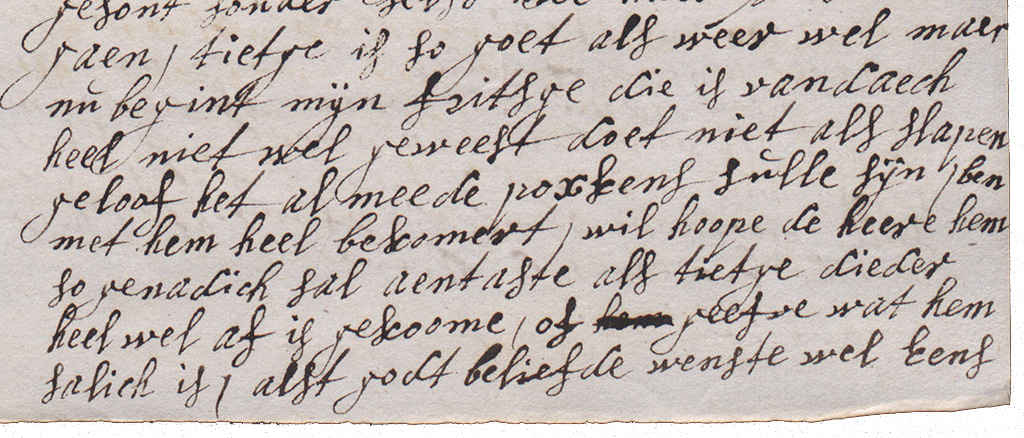 gesont sonder
gaen, tietge is so goet als weer wel maer
nu begint mijn fritsge die is vandaech
heel niet wel geweest doet niet als slapen
geloof het al meede poxkens sulle sijn, ben
met hem heel bekomert, wil hoope de heere hem
so genadich sal aentaste als tietge dieder
heel wel af is gekoome, of hem geefve wat hem
salich is, alst godt beliefde wenste wel eens